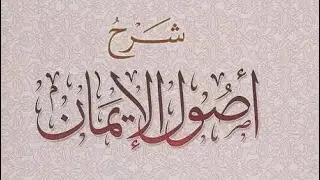 شَرْحُ
أُصُولِ الْإِيمَانِ